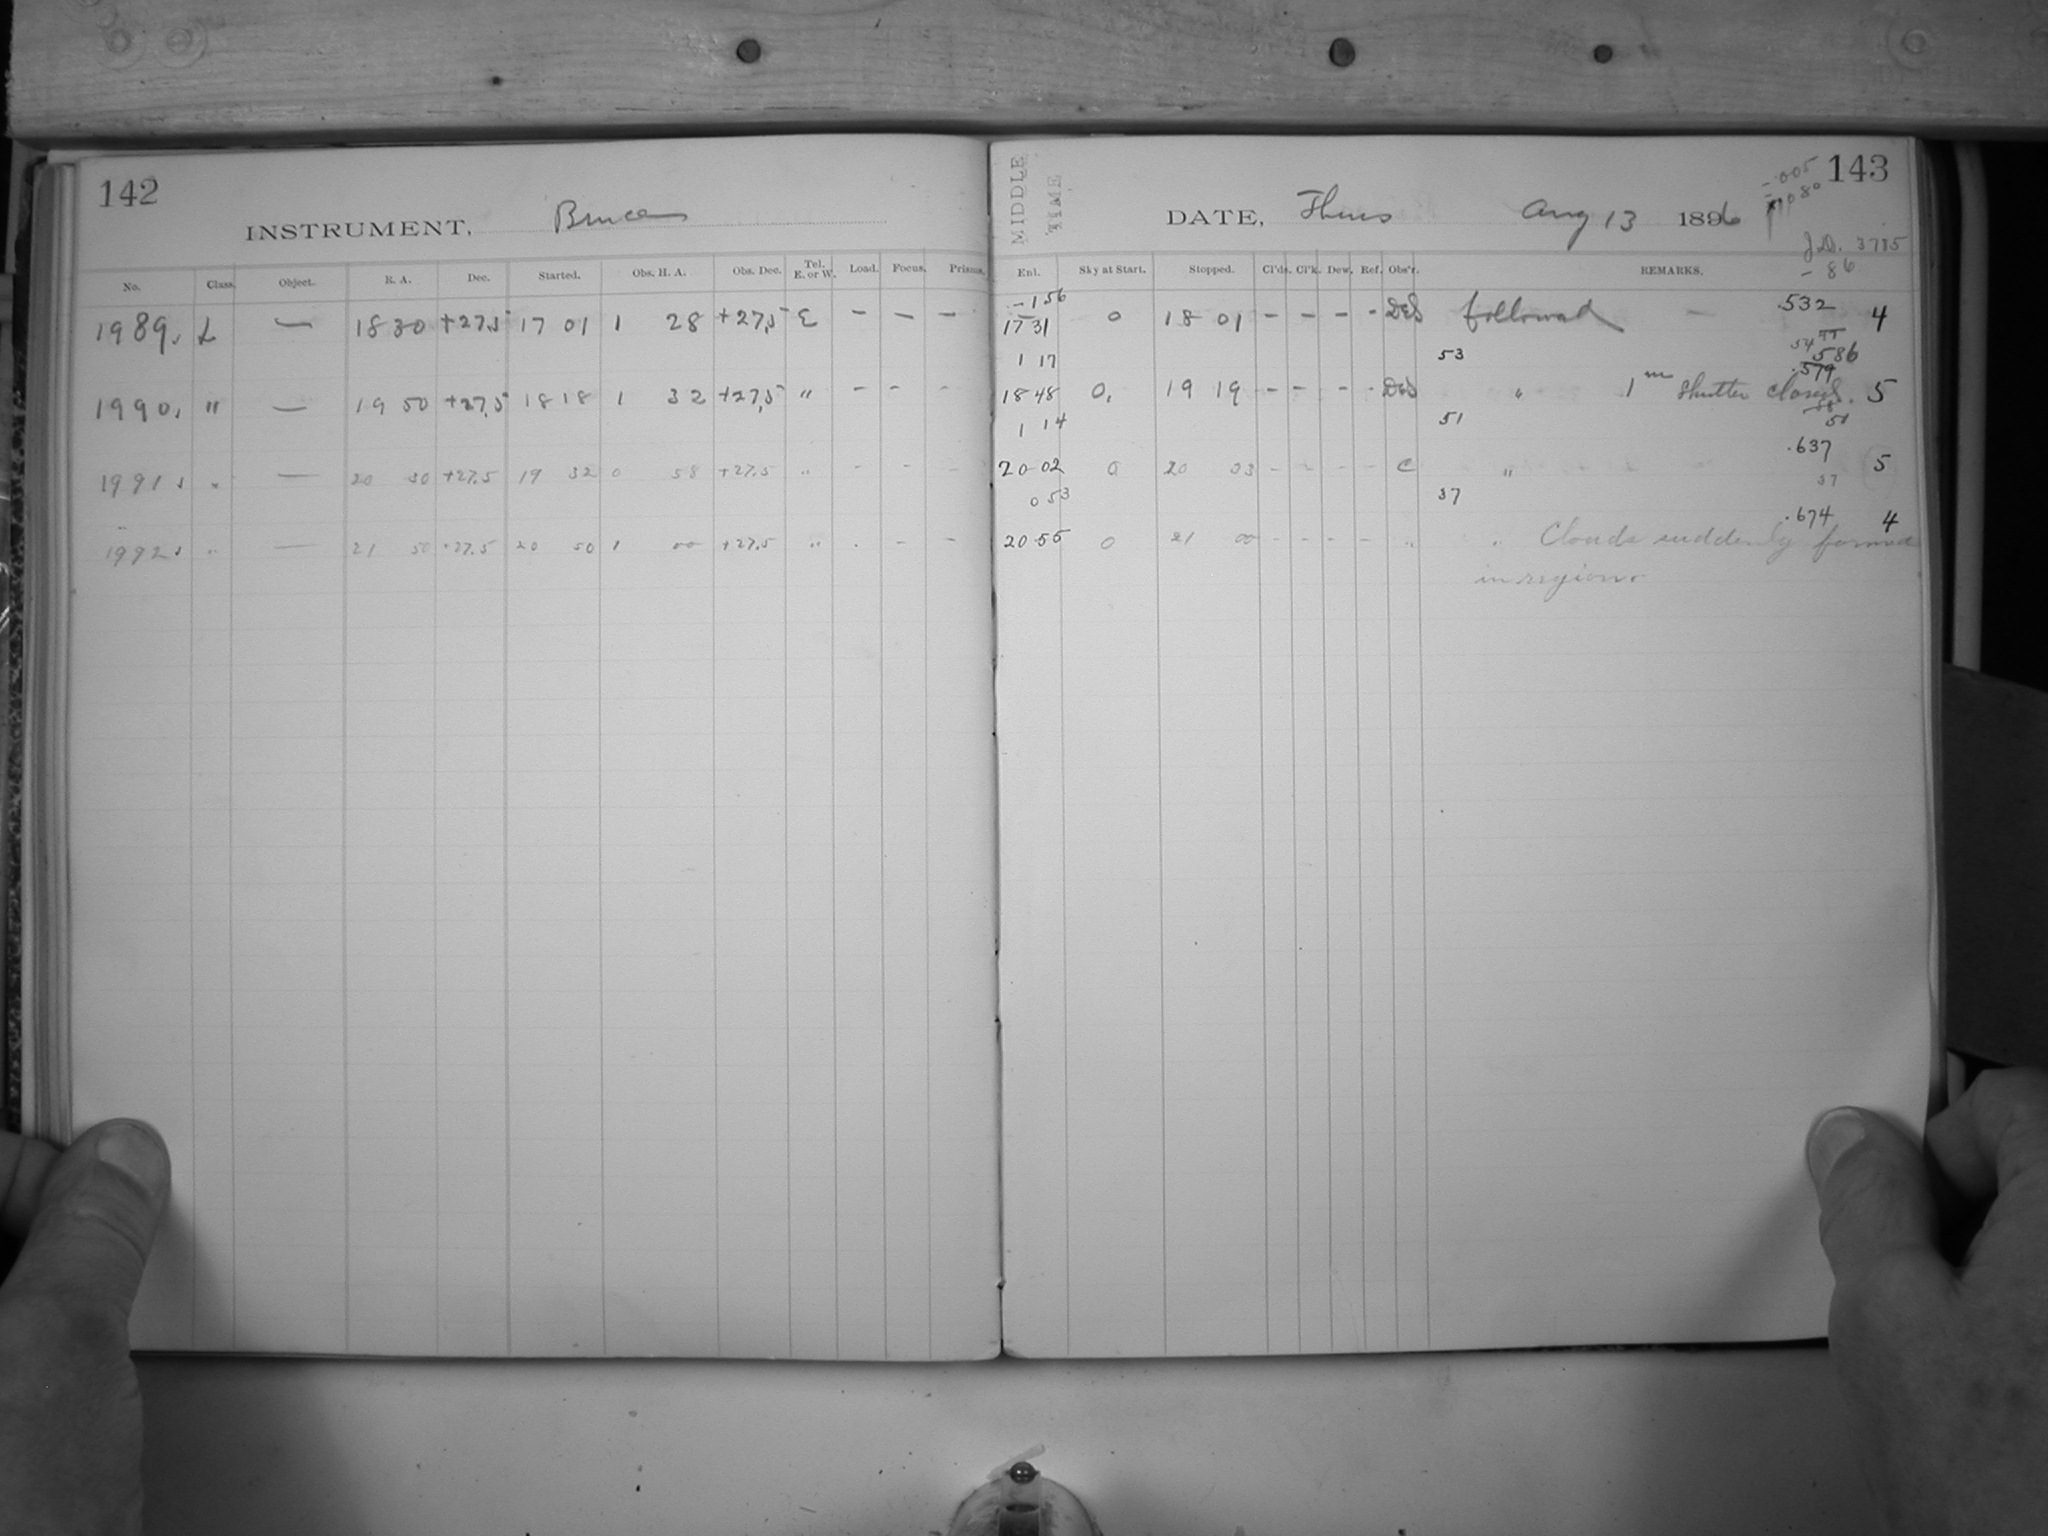 142
INSTRUMENT, Bruce
No. Class. Object. R. A. Dec. Started. Obs. H. A. Obs. Dec. Tel. E. or W. Load. Focus. Prisms.
1989. L — 18 30 +27,5 17 01 1 28 +27,5 E — — —
1990. " — 19 50 +27,5 18 18 1 32 +27,5 " — — —
1991. " — 20 30 +27.5 19 32 0 58 +27.5 " - - -
1992. " — 21 50 +27.5 20 50 1 00 +27.5 " - - -
143
MIDDLE TIME
DATE, Thurs Aug 13 1896
-.005
.080
J.D. 3785
- 86
Enl. Sky at Start. Stopped. Cl'ds. Cl'k. Dew. Ref. Obs'r. REMARKS.
-1 56
17 31 0 18 01 - - - - DES followed .532 4
1 17 53 54 586
.579
18 48 0, 19 19 - - - - DES " 1m shutter closed. 5
1 14 51 58 51
.637
20 02 0 20 03 - - - - C " 5
37
0 53 37
.674 4
20 55 0 21 00 - - - - " " Clouds suddenly formed
in region.